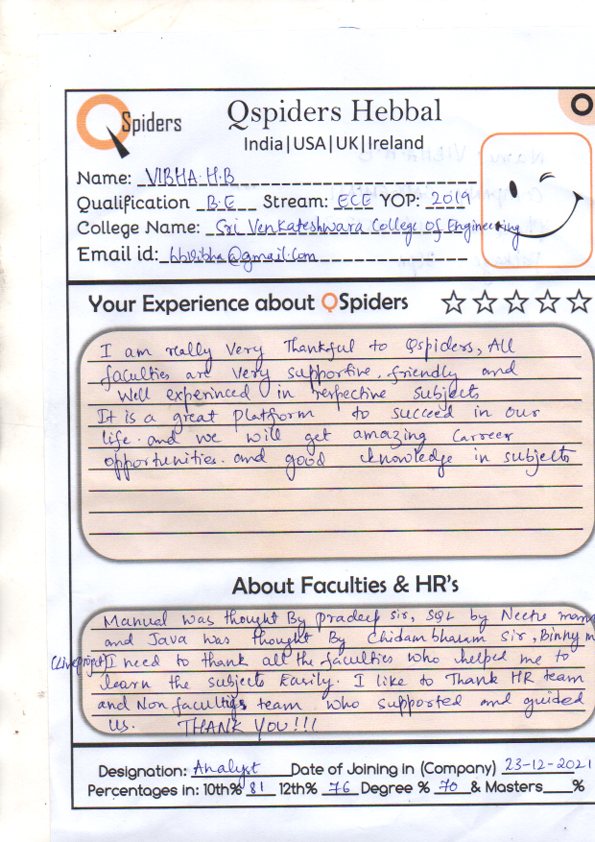 QSpiders
Qspiders Hebbal
India|USA|UK|Ireland
Name: VIBHA.H.B
Qualification B.E Stream: ECE YOP: 2019
College Name: Sri Venkateshwara College Of Engineering
Email id: hbvibha@gmail.com
Your Experience about QSpiders
I am really very Thankful to Qspiders, All
faculties are very supportive. friendly and
Well experinced in respective subjects
It is a great platform to succeed in our
life. and we will get amazing Carreer
opportunities. and good cknowledge in subjects
About Faculties & HR's
Manual was thought By pradeep sir, SQL by Neetu
and Java was thought By Chidambharam sir, Binny
(Live project) I need to thank all the faculties who helped me to
learn the subjects Easily. I like to Thank HR team
and Non faculties team who supported and guided
us. THANK YOU!!!
Designation: Analyst Date of Joining in (Company) 23-12-2021
Percentages in: 10th% 81 12th% 76 Degree % 70 & Masters %